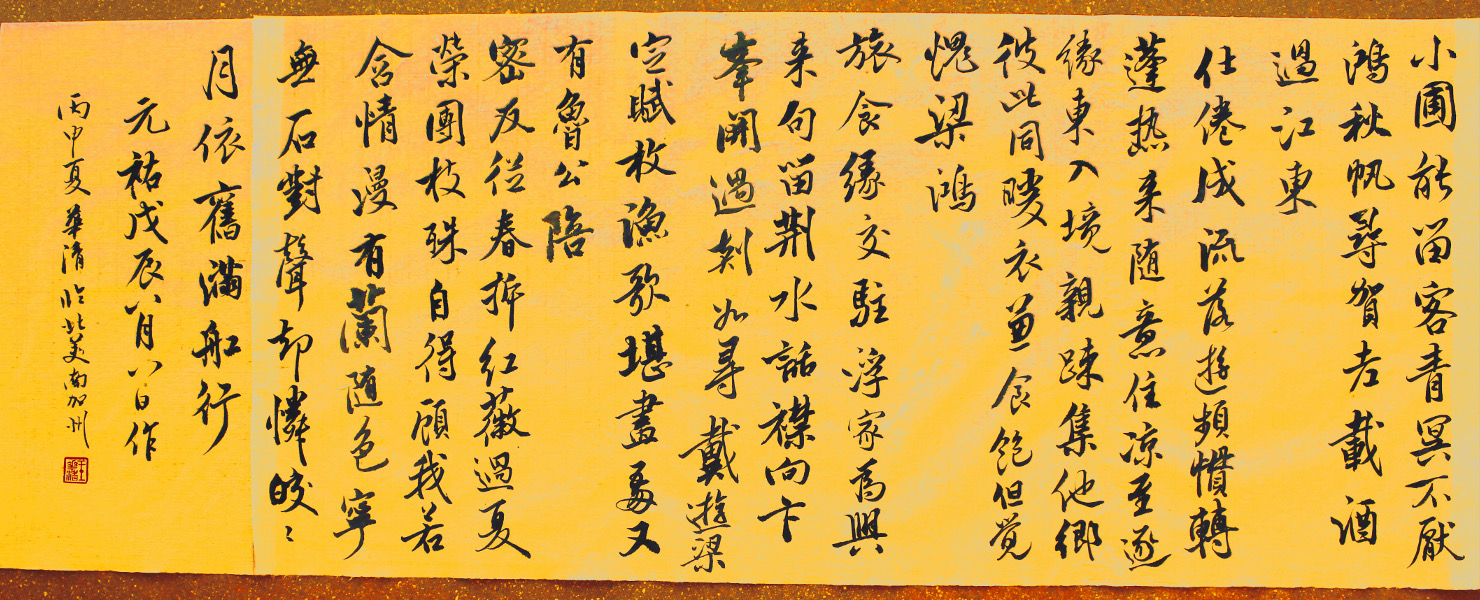 小圃能留客青冥不厭
鴻秋帆尋賀老載酒
過江東
仕倦成流落遊頻慣轉
蓬熱来随意住凉至逐
緣東入境親疎集他鄉
彼此同暖衣兼食飽但覺
愧梁鴻
旅食緣交駐浮家為興
来句留荆水話襟向卞
峯開過剡如尋戴遊梁
定賦枚漁歌堪畫處又
有魯公陪
密友從春拆紅薇過夏
榮團枝殊自得顧我若
含情漫有蘭随色寧
無石對聲却憐皎〻
月依舊滿船行
元祐戊辰八月八日作
丙申夏華清臨北美南加州